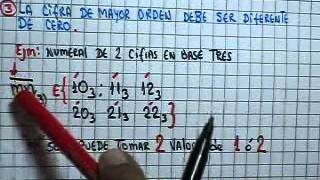 ③ LA CIFRA DE MAYOR ORDEN DEBE SER DIFERENTE
DE CERO.
Ejm: NUMERAL DE 2 CIFRAS EN BASE TRES
mn(3) E{10₃; 11₃ 12₃
20₃ 21₃ 22₃}
PUEDE TOMAR 2 VALORES de 1 ó 2